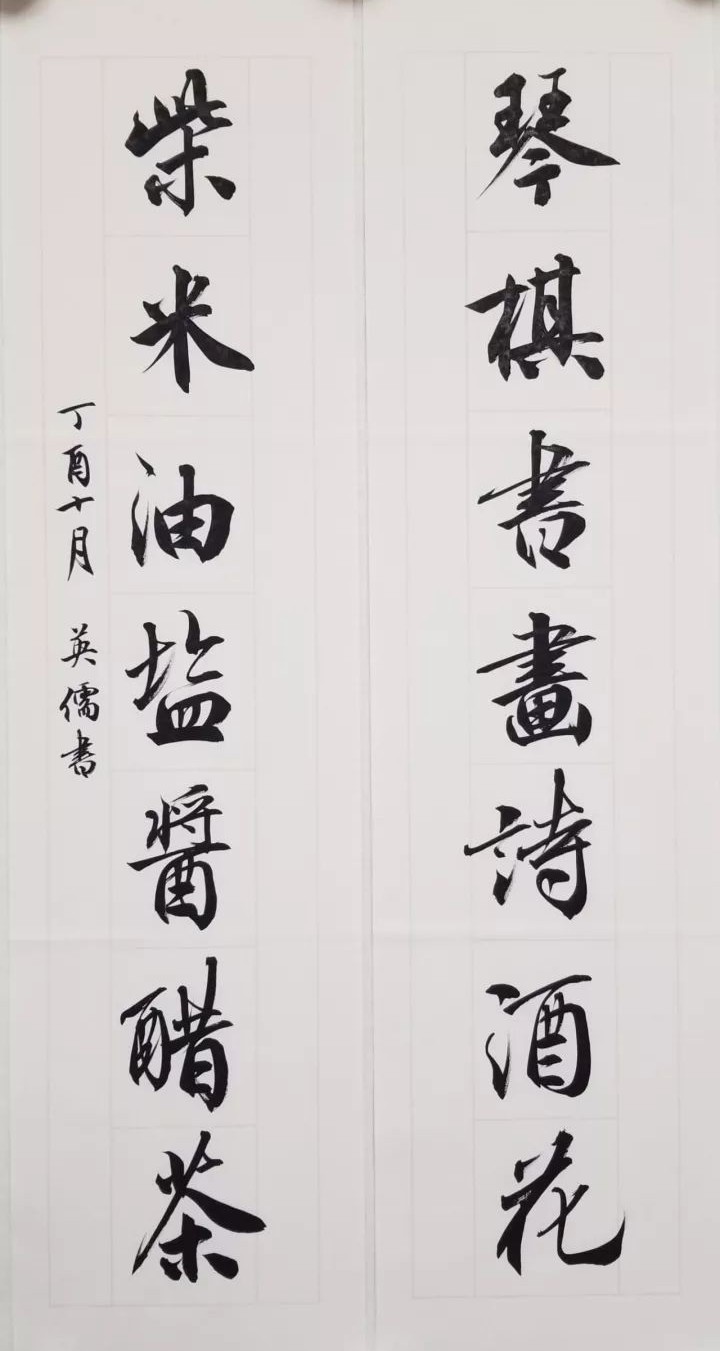 琴棋書畫詩酒花
柴米油塩醬醋茶
丁酉十月 英儒书